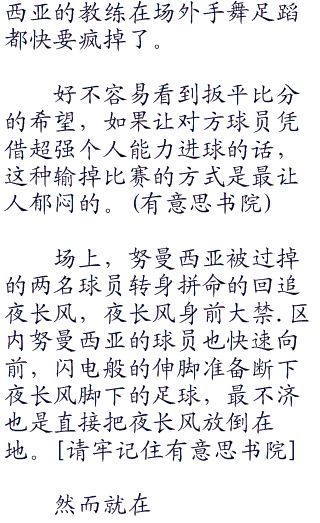 西亚的教练在场外手舞足蹈
都快要疯掉了。
好不容易看到扳平比分
的希望，如果让对方球员凭
借超强个人能力进球的话，
这种输掉比赛的方式是最让
人郁闷的。(有意思书院)
场上，努曼西亚被过掉
的两名球员转身拼命的回追
夜长风，夜长风身前大禁.区
内努曼西亚的球员也快速向
前，闪电般的伸脚准备断下
夜长风脚下的足球，最不济
也是直接把夜长风放倒在
地。[请牢记住有意思书院]
然而就在